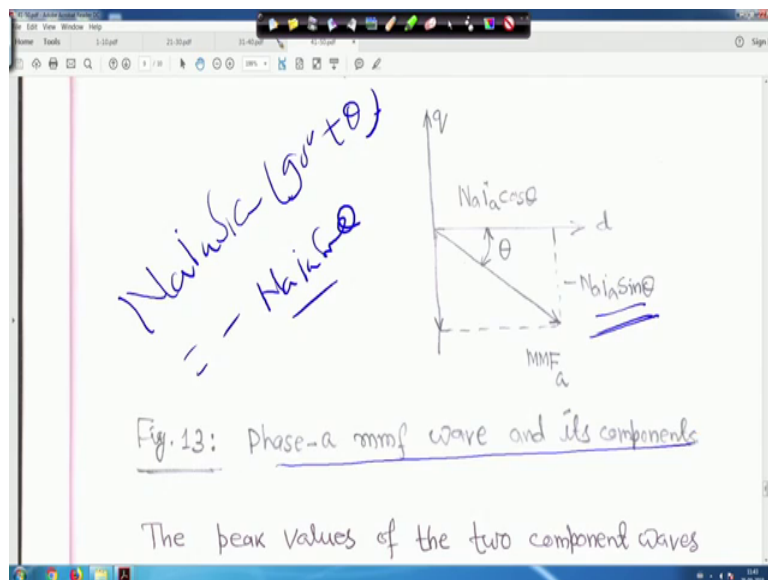 File Edit View Window Help
Home Tools 1-10.pdf 21-30.pdf 31-40.pdf 41-50.pdf Sign
q
Na ia cosθ
d
θ
- Na ia sinθ
MMF a
Na ia Sin (90° + θ)
= - Na ia Sinθ
Fig. 13: Phase-a mmf wave and its components
The peak values of the two component waves